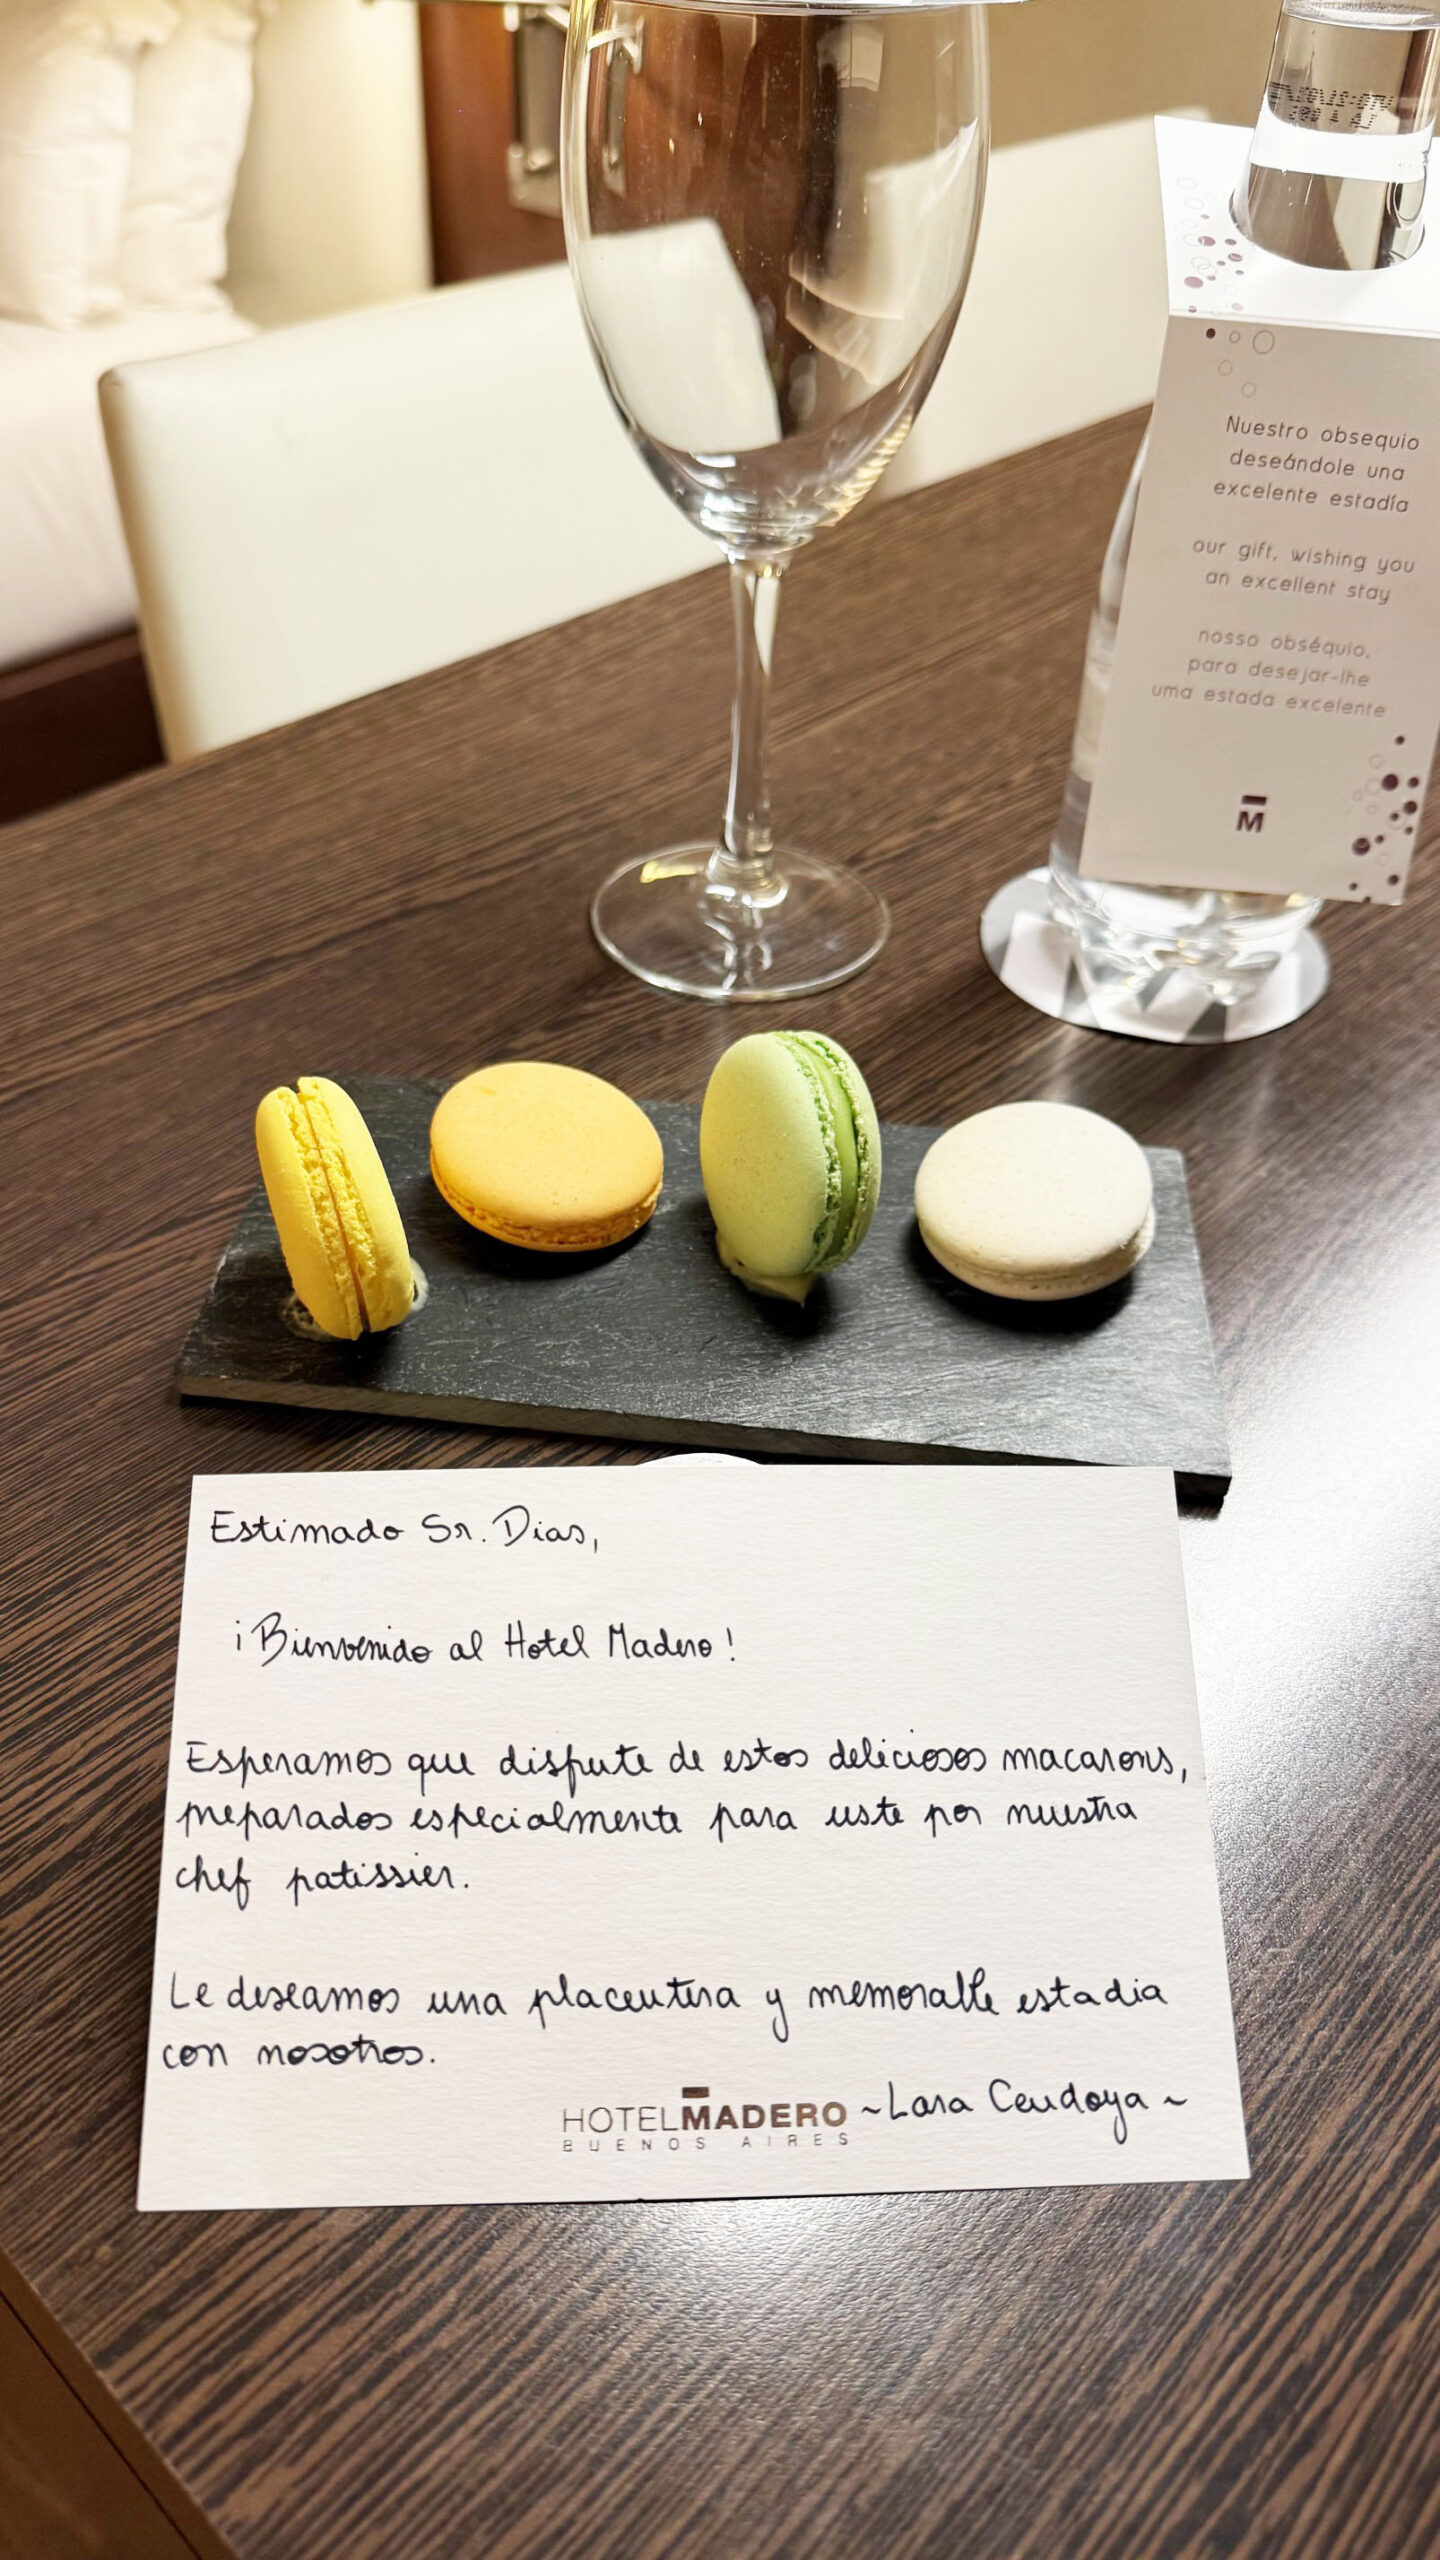 Nuestro obsequio
deseándole una
excelente estadía
our gift, wishing you
an excellent stay
nosso obséquio,
para desejar-lhe
uma estada excelente
M
Estimado Sr. Dias,
¡Bienvenido al Hotel Madero!
Esperamos que disfrute de estos deliciosos macarons,
preparados especialmente para uste por nuestra
chef patissier.
Le deseamos una placentera y memorable estadia
con nosotros.
~Lara Cendoya~
HOTELMADERO
BUENOS AIRES